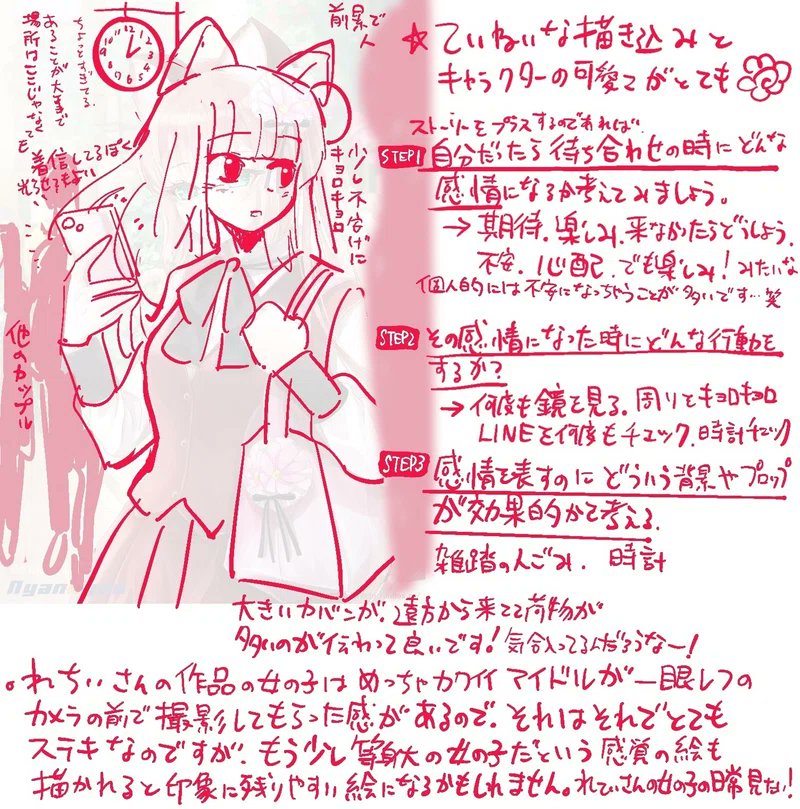 前景で
人
ちょっとすぎてる
あることが大事で
場所はここじゃなくても
着信してるぽく
光らせてもよい
少し不安げに
キョロキョロ
他のカップル
☆ ていねいな描き込みと
キャラクターの可愛さがとても
ストーリーをプラスするのであれば
STEP1 自分だったら待ち合わせの時にどんな
感情になるか考えてみましょう。
→ 期待、楽しみ、来なかったらどうしよう、
不安、心配、でも楽しみ!みたいな
個人的には不安になっちゃうことが多いです…笑
STEP2 その感情になった時にどんな行動を
するか?
→ 何度も鏡を見る、周りをキョロキョロ
LINEを何度もチェック、時計チェック
STEP3 感情を表すのにどういう背景やプロップ
が効果的かを考える。
雑踏の人ごみ、時計
大きいカバンが、遠方から来てて荷物が
多いのが伝わって良いです!気合入ってるんだろうなー!
。れちぃさんの作品の女の子はめっちゃカワイイアイドルが一眼レフの
カメラの前で撮影してもらった感があるので、それはそれでとても
ステキなのですが、もう少し等身大の女の子だという感覚の絵も
描かれると印象に残りやすい絵になるかもしれません。れちぃさんの女の子の日常見たい!